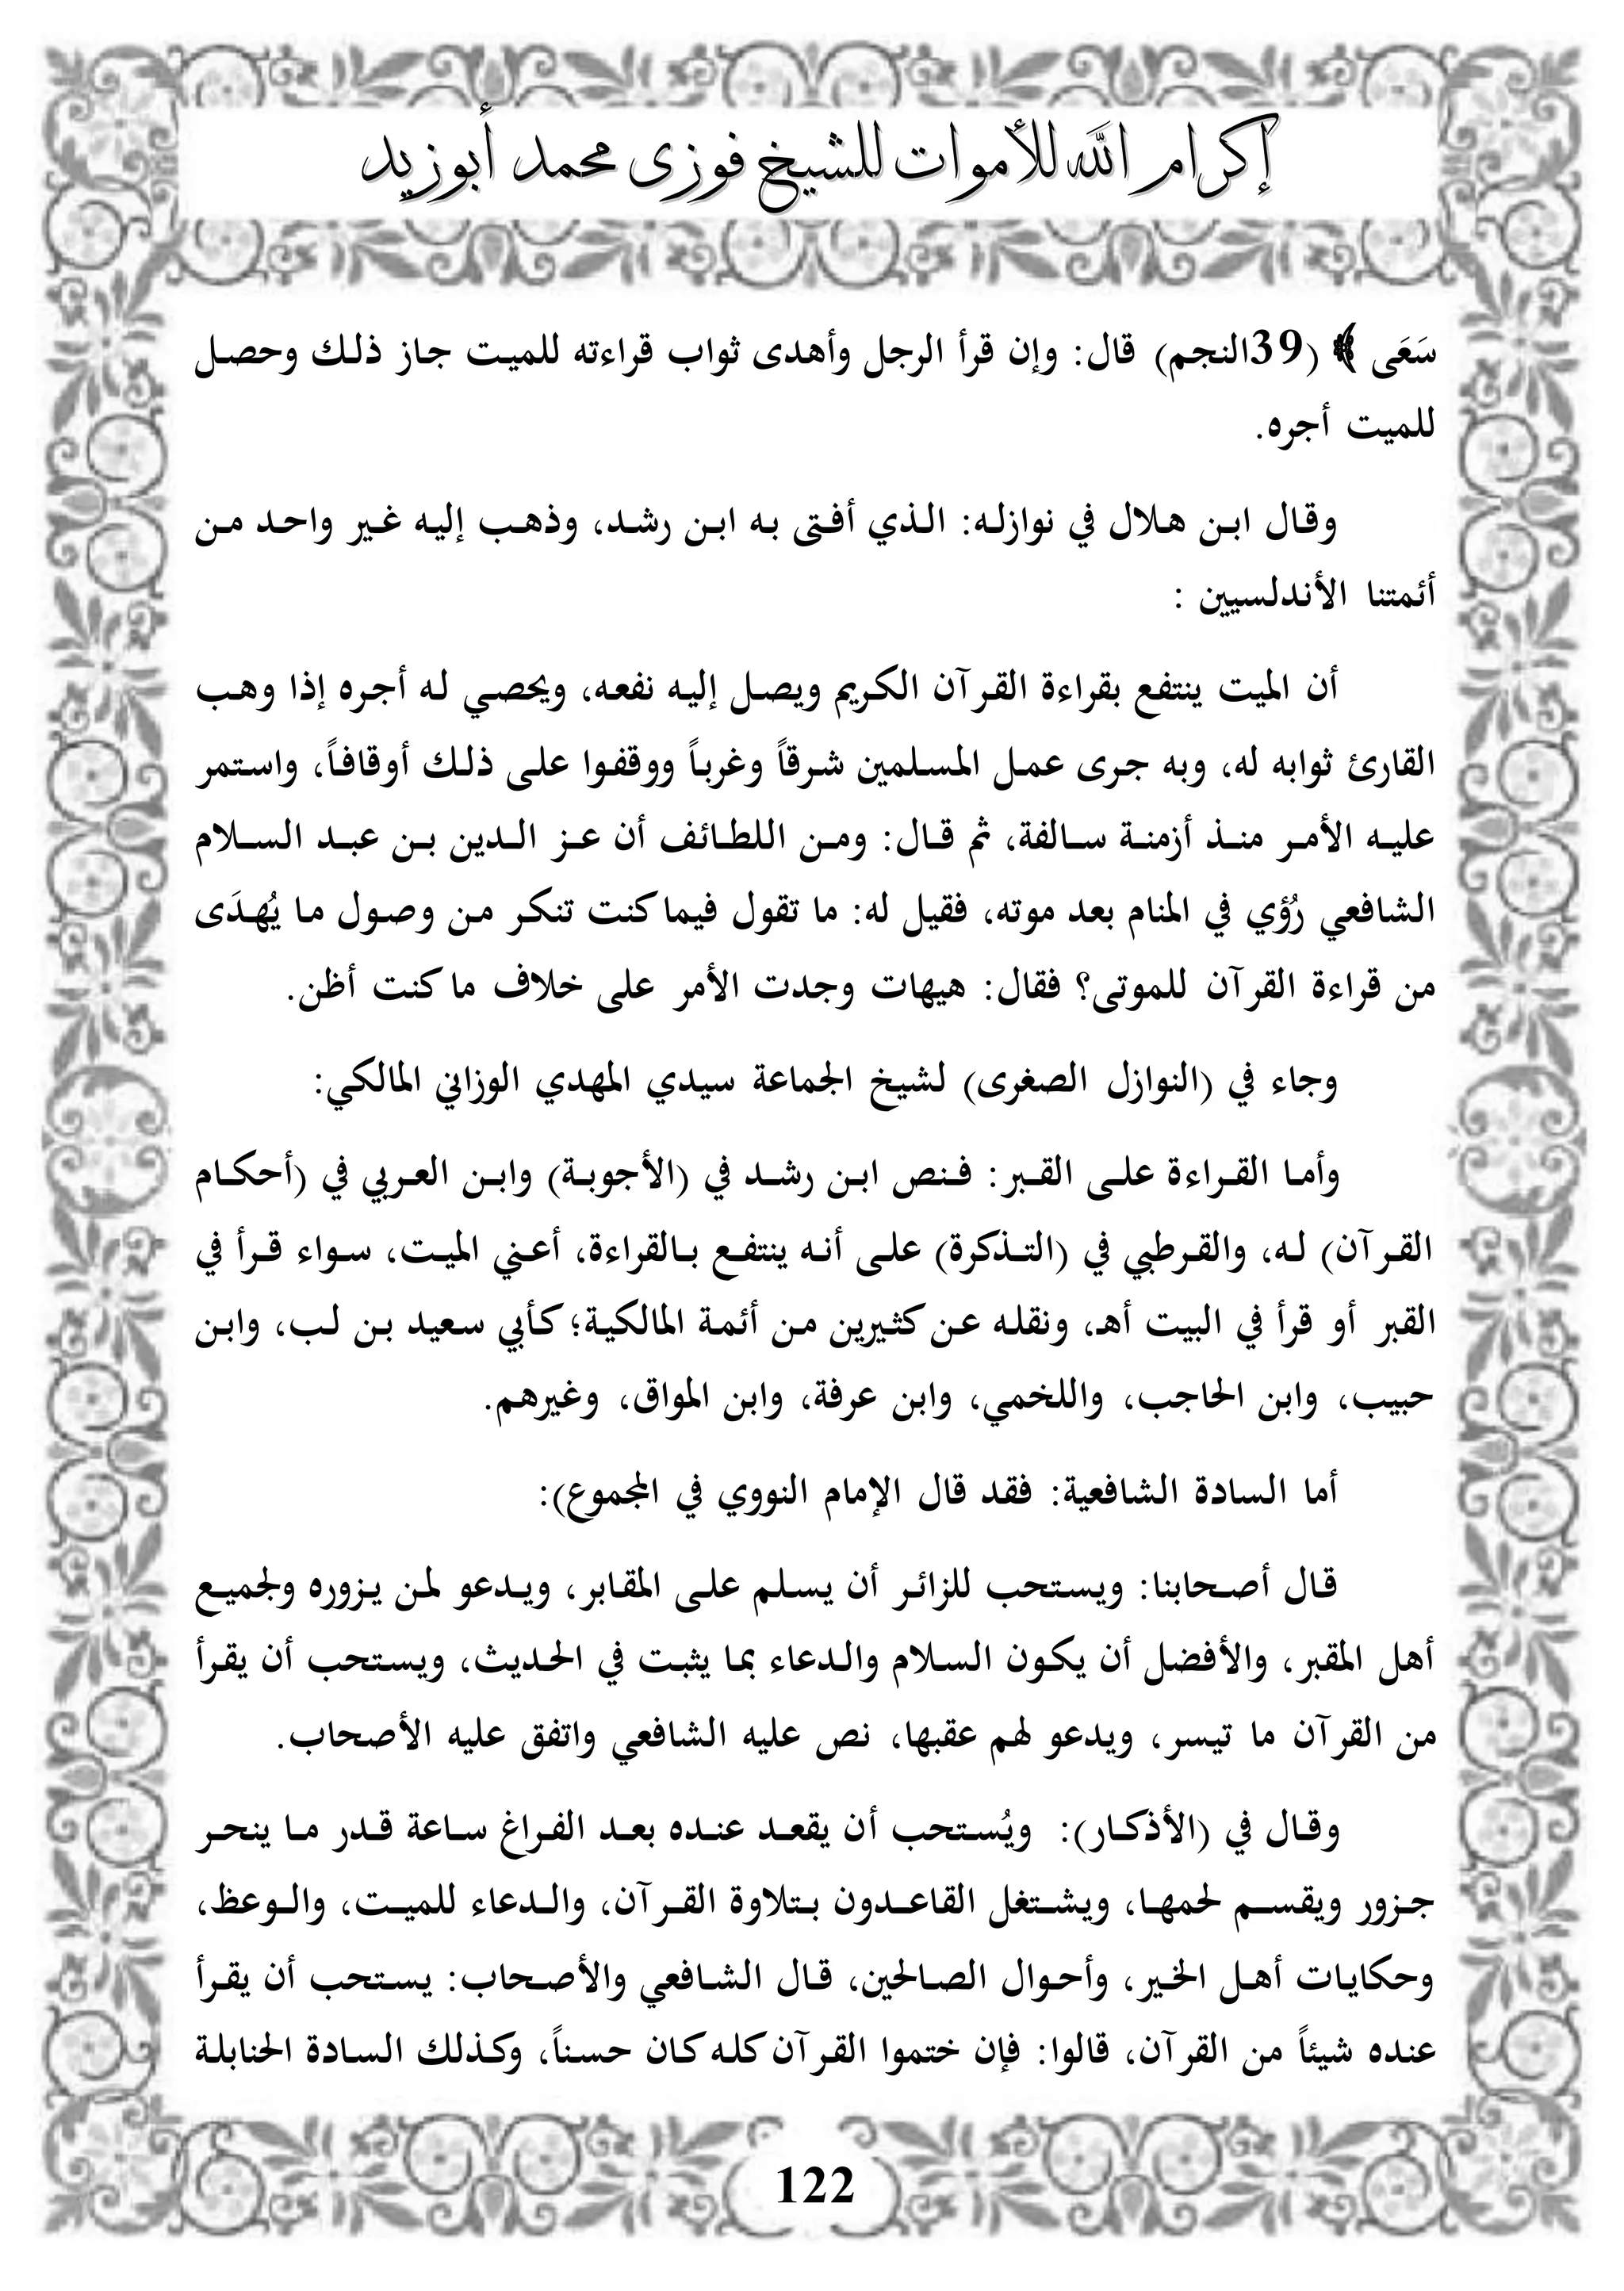 إكرام الله للأموات للشيخ فوزى محمد أبوزيد
سَعَى ﴾ (39النجم) قال: وإن قرأ الرجل وأهدى ثواب قراءته للميت جاز ذلك وحصل
للميت أجره.
وقال ابن هلال في نوازله: الذي أفتى به ابن رشد، وذهب إليه غير واحد من
أئمتنا الأندلسيين :
أن الميت ينتفع بقراءة القرآن الكريم ويصل إليه نفعه، ويحصي له أجره إذا وهب
القارئ ثوابه له، وبه جرى عمل المسلمين شرقاً وغرباً ووقفوا على ذلك أوقافاً، واستمر
عليه الأمر منذ أزمنة سالفة، ثم قال: ومن اللطائف أن عز الدين بن عبد السلام
الشافعي رُؤي في المنام بعد موته، فقيل له: ما تقول فيما كنت تنكر من وصول ما يُهدَى
من قراءة القرآن للموتى؟ فقال: هيهات وجدت الأمر على خلاف ما كنت أظن.
وجاء في (النوازل الصغرى) لشيخ الجماعة سيدي المهدي الوزاني المالكي:
وأما القراءة على القبر: فنص ابن رشد في (الأجوبة) وابن العربي في (أحكام
القرآن) له، والقرطبي في (التذكرة) على أنه ينتفع بالقراءة، أعني الميت، سواء قرأ في
القبر أو قرأ في البيت أهـ، ونقله عن كثيرين من أئمة المالكية؛ كأبي سعيد بن لب، وابن
حبيب، وابن الحاجب، واللخمي، وابن عرفة، وابن المواق، وغيرهم.
أما السادة الشافعية: فقد قال الإمام النووي في المجموع):
قال أصحابنا: ويستحب للزائر أن يسلم على المقابر، ويدعو لمن يزوره ولجميع
أهل المقبر، والأفضل أن يكون السلام والدعاء بما يثبت في الحديث، ويستحب أن يقرأ
من القرآن ما تيسر، ويدعو لهم عقبها، نص عليه الشافعي واتفق عليه الأصحاب.
وقال في (الأذكار): ويُستحب أن يقعد عنده بعد الفراغ ساعة قدر ما ينحر
جزور ويقسم لحمها، ويشتغل القاعدون بتلاوة القرآن، والدعاء للميت، والوعظ،
وحكايات أهل الخير، وأحوال الصالحين، قال الشافعي والأصحاب: يستحب أن يقرأ
عنده شيئاً من القرآن، قالوا: فإن ختموا القرآن كله كان حسناً، وكذلك السادة الحنابلة
122